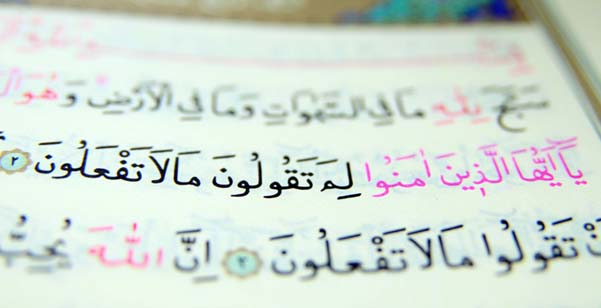 سَبَّحَ لِلّٰهِ مَا فِي السَّمٰوَاتِ وَمَا فِي الْاَرْضِ وَهُوَ
يَٓا اَيُّهَا الَّذٖينَ اٰمَنُوا لِمَ تَقُولُونَ مَا لَا تَفْعَلُونَ ٢
تَقُولُوا مَا لَا تَفْعَلُونَ ٣ اِنَّ اللّٰهَ يُحِبُّ